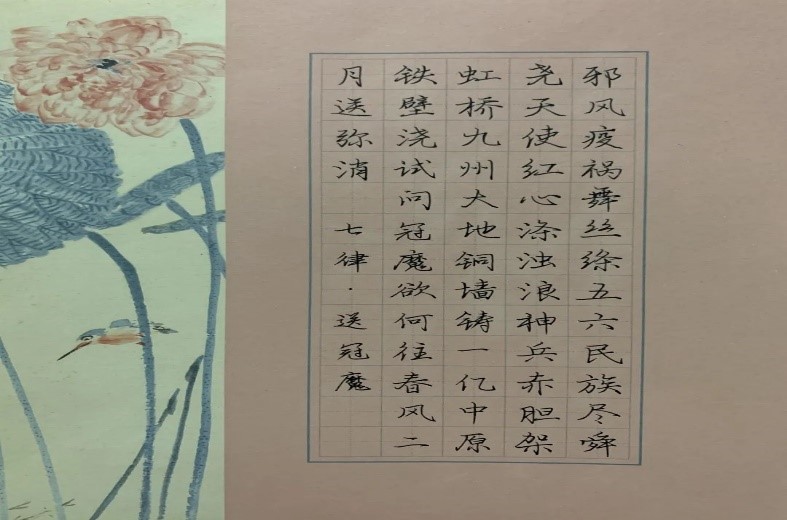 邪风疫祸舞丝绦五六民族尽舜
尧天使红心涤浊浪神兵赤胆架
虹桥九州大地铜墙铸一亿中原
铁壁浇试问冠魔欲何往春风二
月送弥消 七律·送冠魔